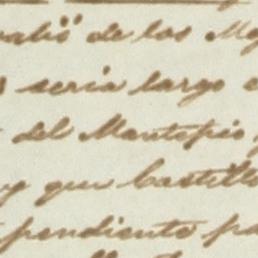 valió de los Me
seria largo e
del Mantopio
y que Castillo
pendiente pa